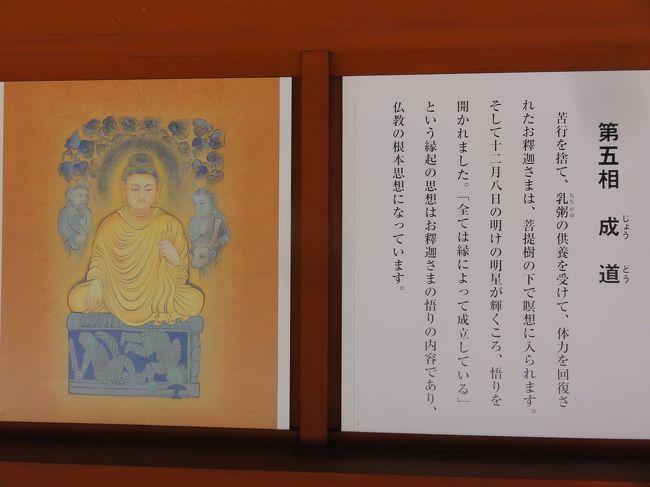 第五相 成道
じょうどう
苦行を捨て、乳粥の供養を受けて、体力を回復さ
ちちがゆ
れたお釋迦さまは、菩提樹の下で瞑想に入られます。
そして十二月八日の明けの明星が輝くころ、悟りを
開かれました。「全ては縁によって成立している」
という縁起の思想はお釋迦さまの悟りの内容であり、
仏教の根本思想になっています。